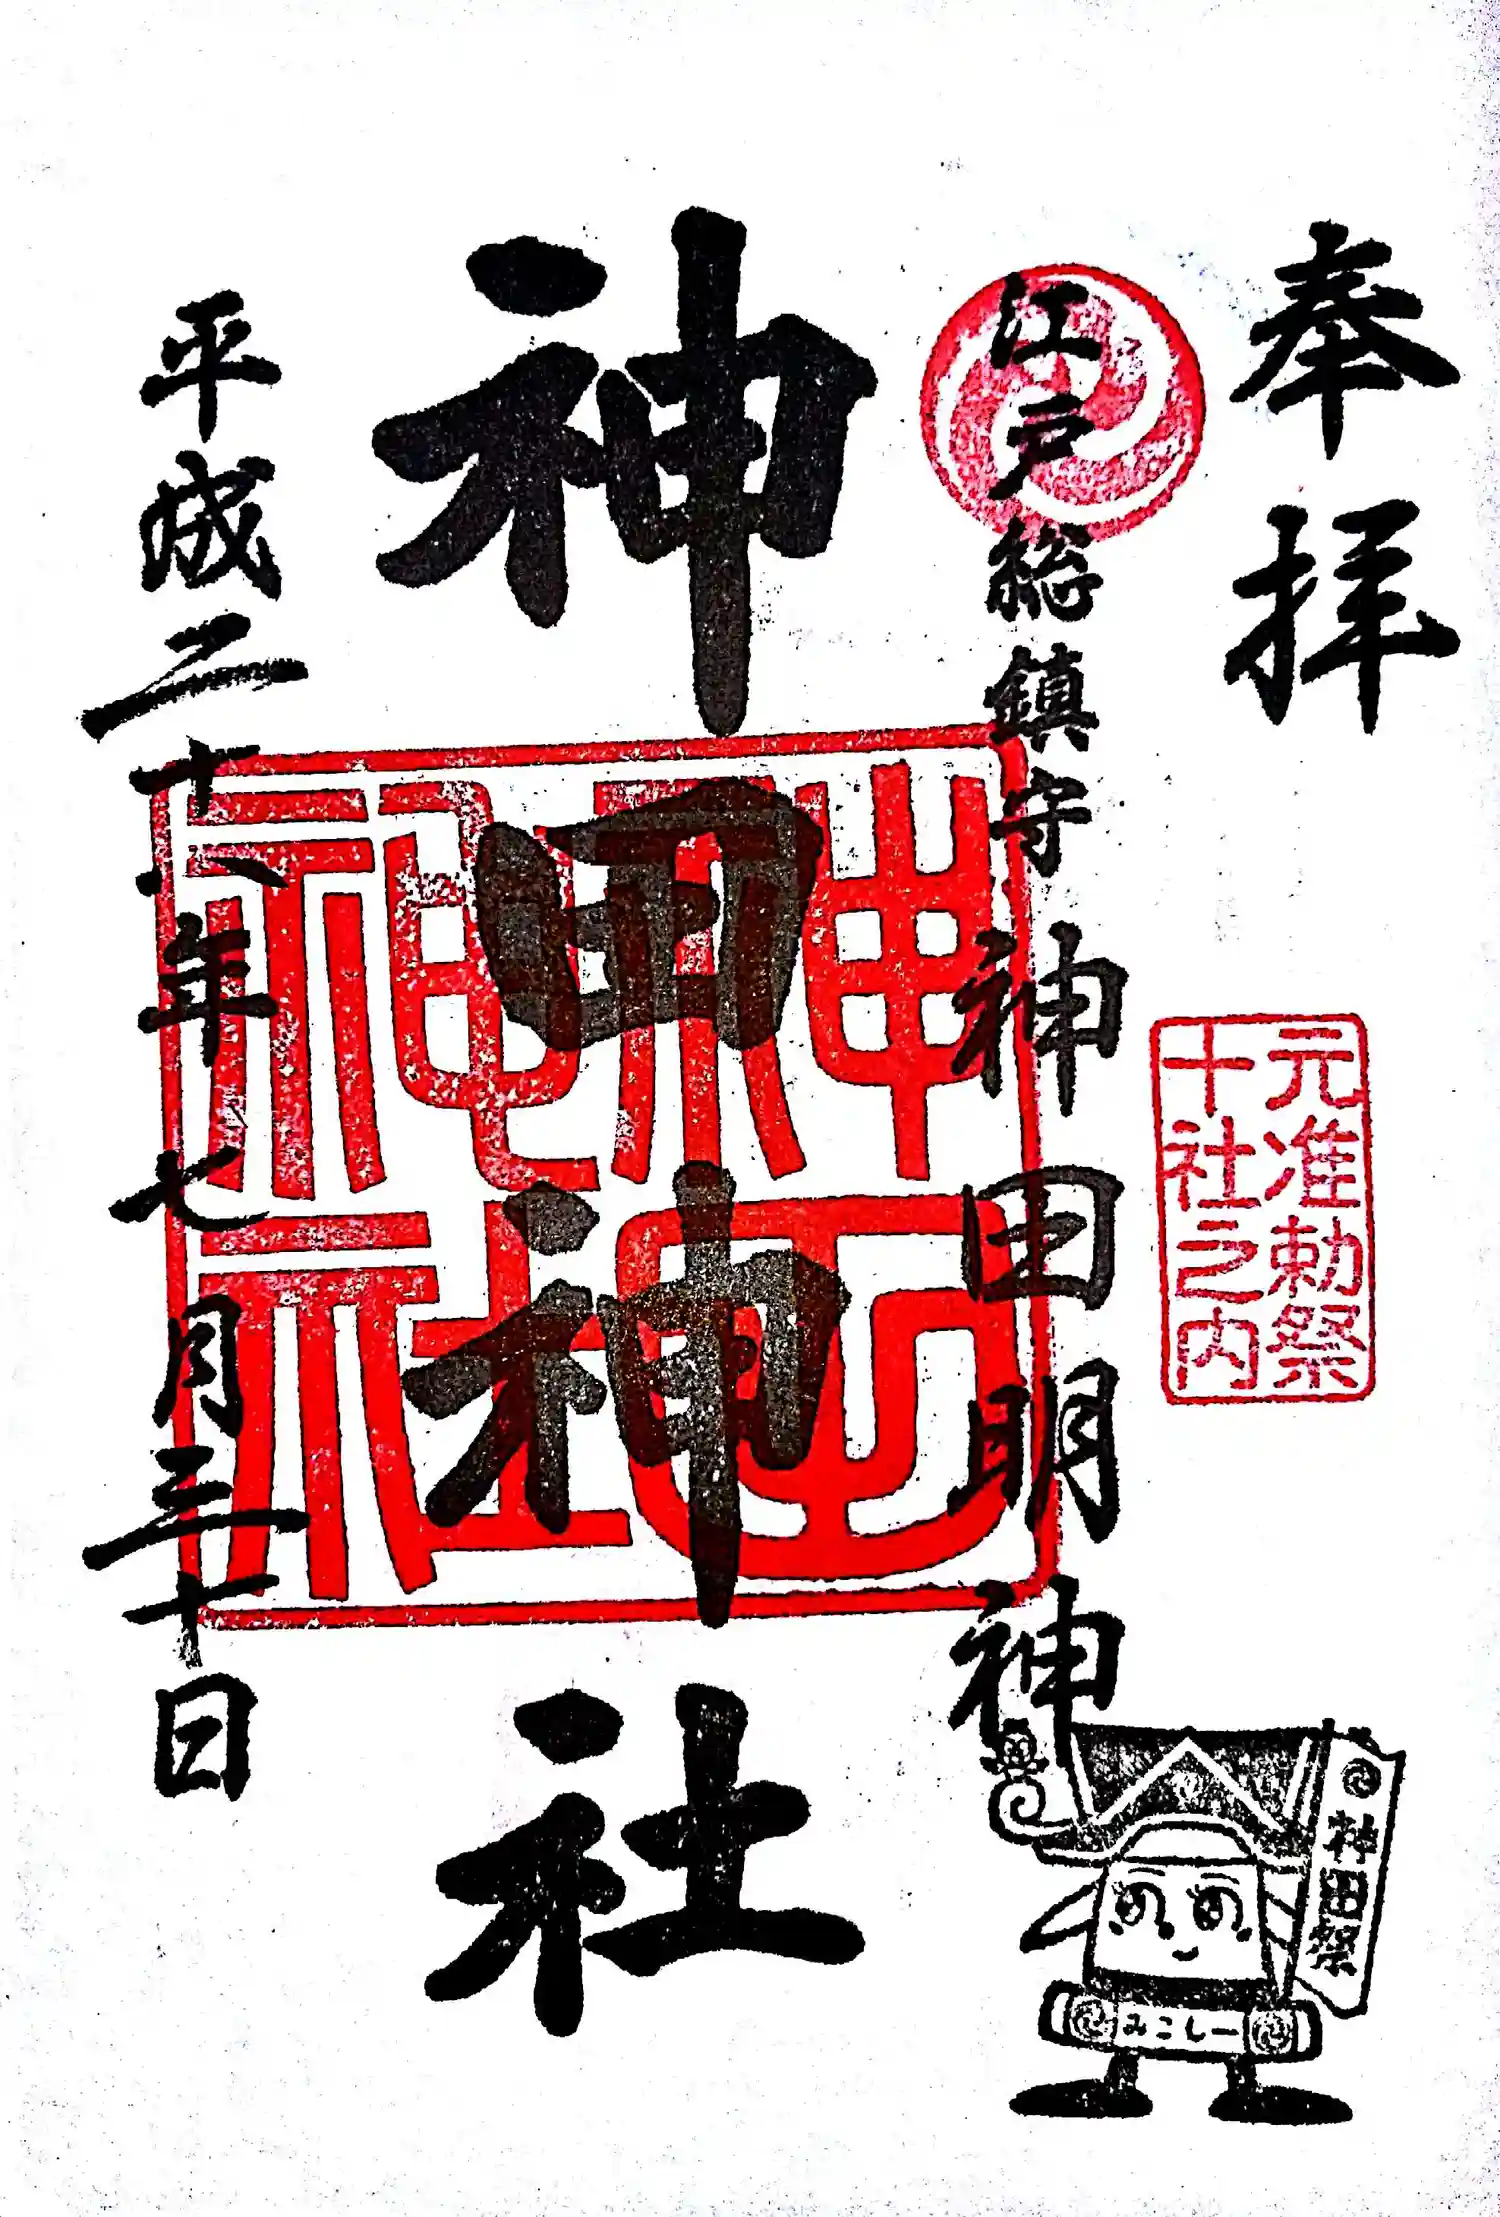 奉拝
元准勅祭
十社之内
江戸総鎮守神田明神
神田神社
神田神社
平成二十八年七月三十日
神田祭
みこしー